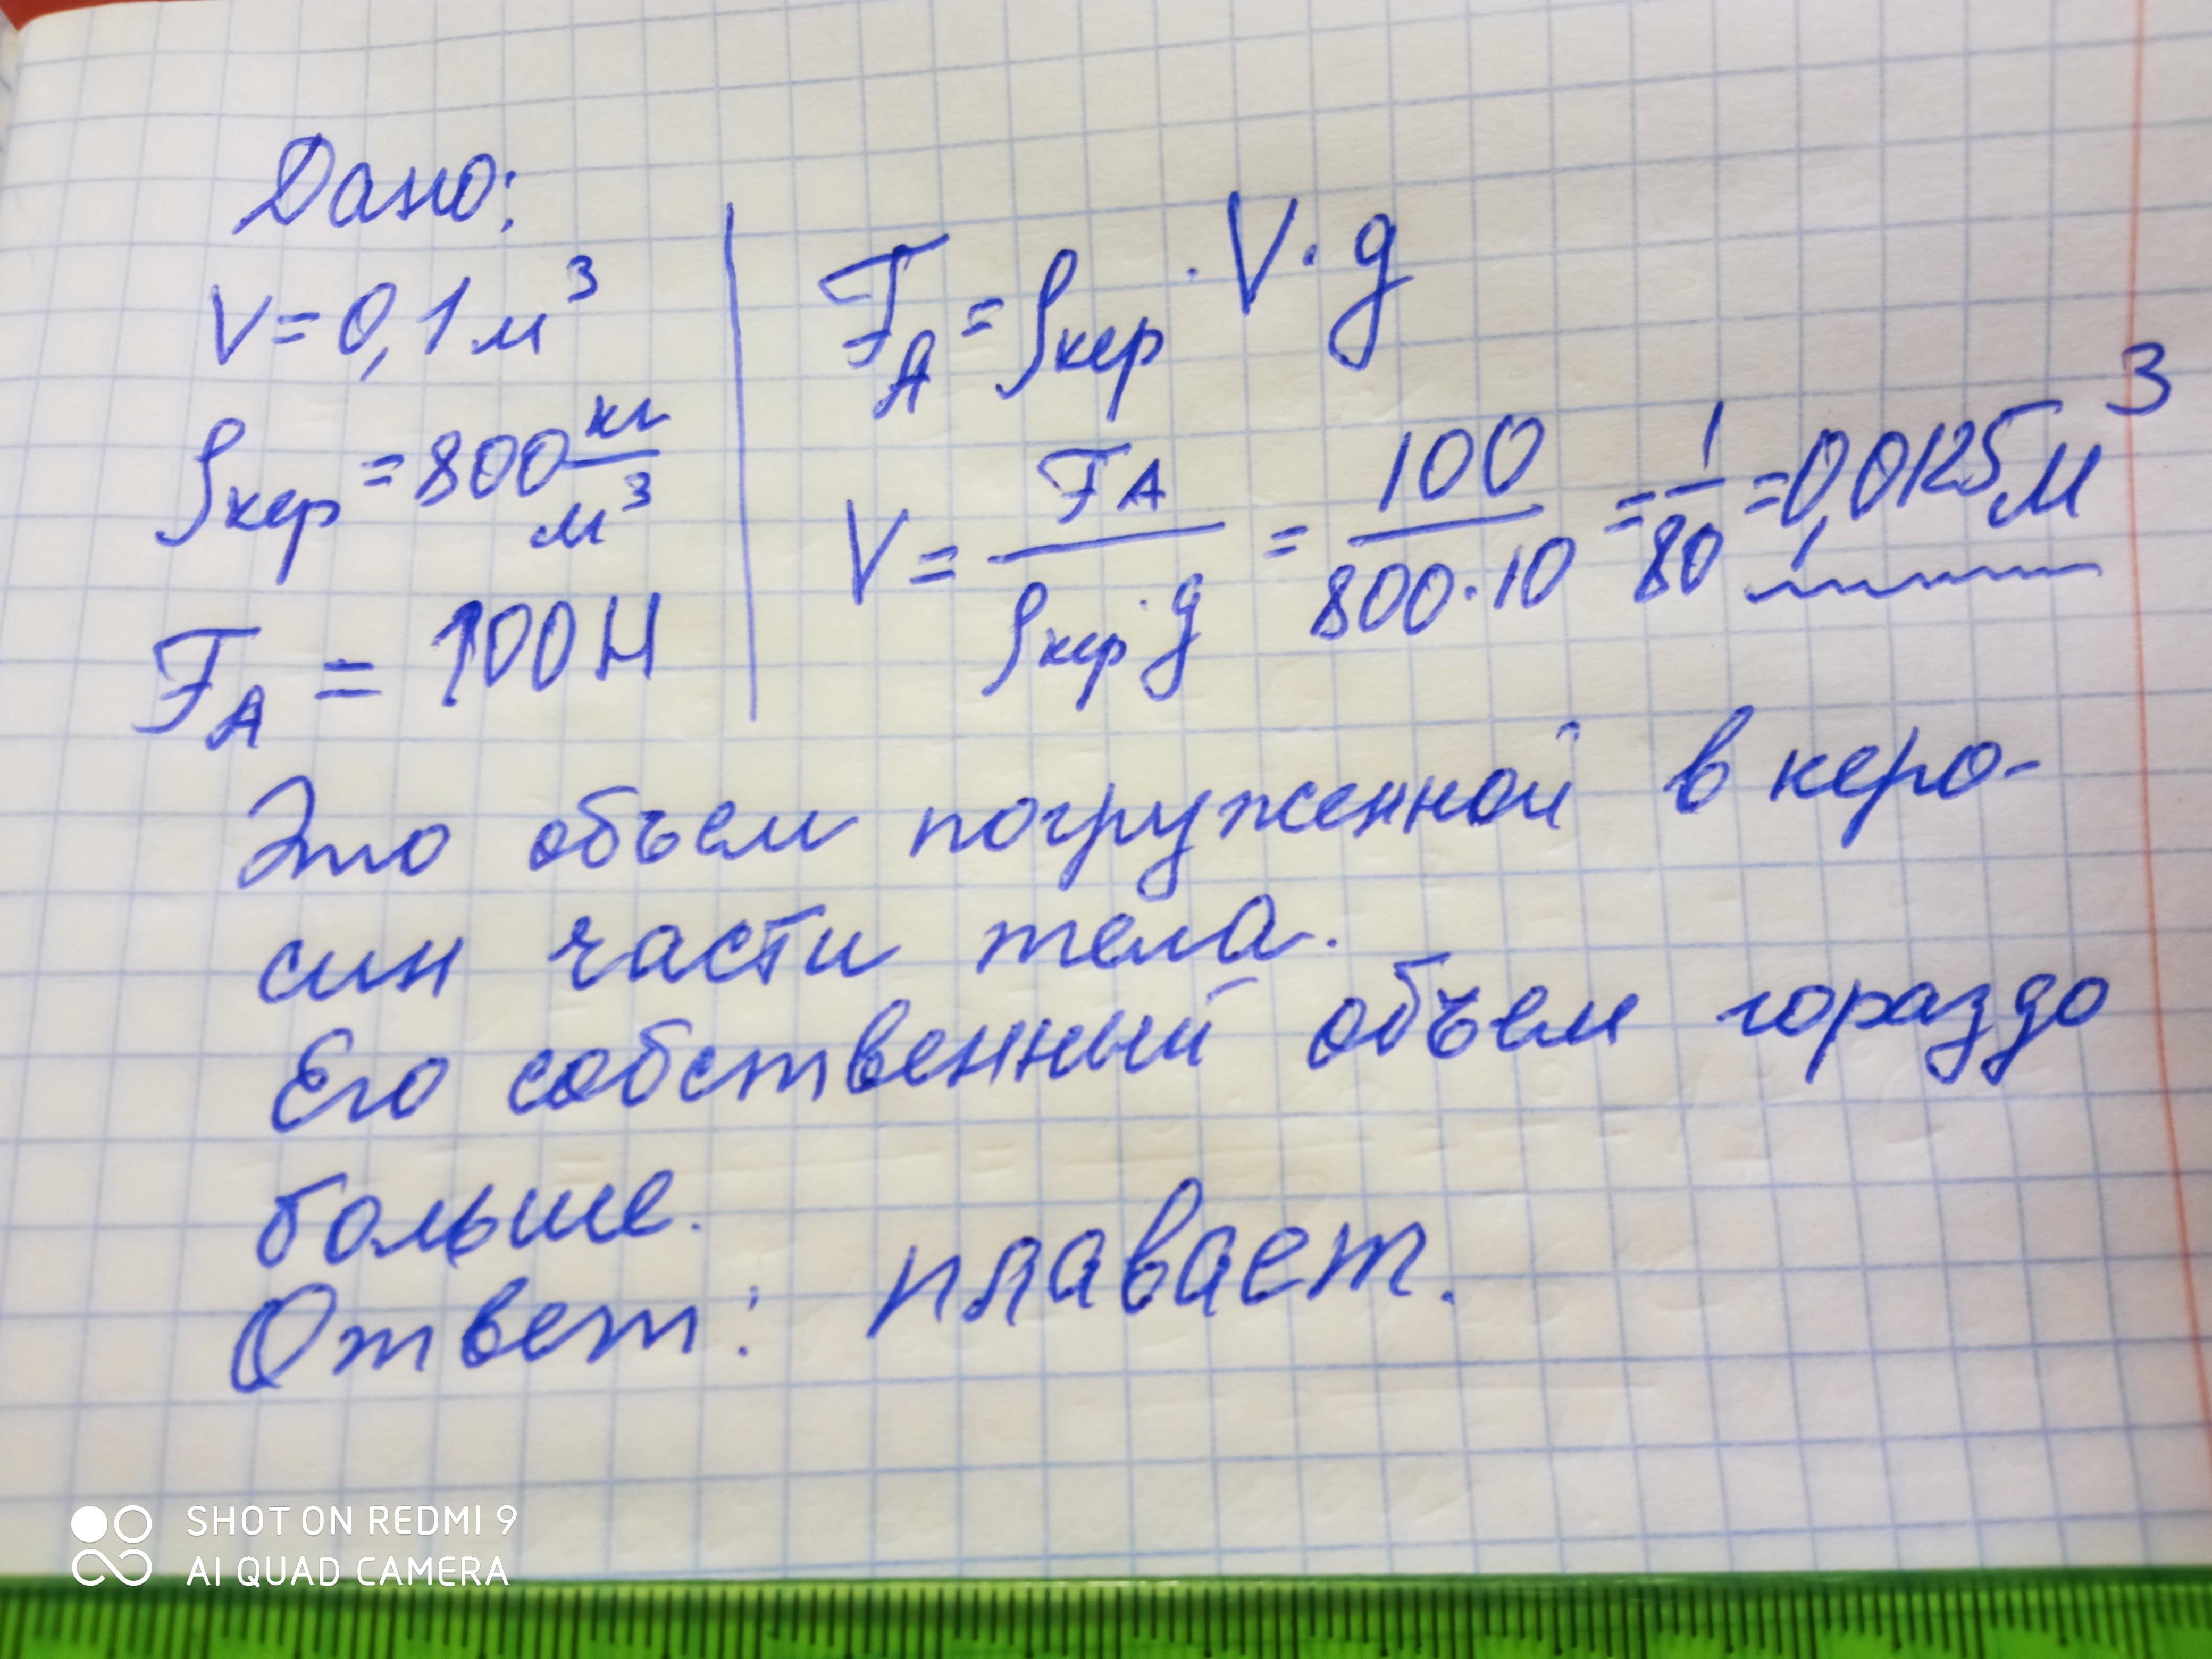 Дано:
V = 0,1 м³
ρкер = 800 кг/м³
FA = 100 Н
FA = ρкер · V · g
V = FA/(ρкер · g) = 100/(800 · 10) = 1/80 = 0,0125 м³
Это объем погруженной в керо-
син части тела.
Его собственный объем гораздо
больше.
Ответ: плавает.
SHOT ON REDMI 9
AI QUAD CAMERA